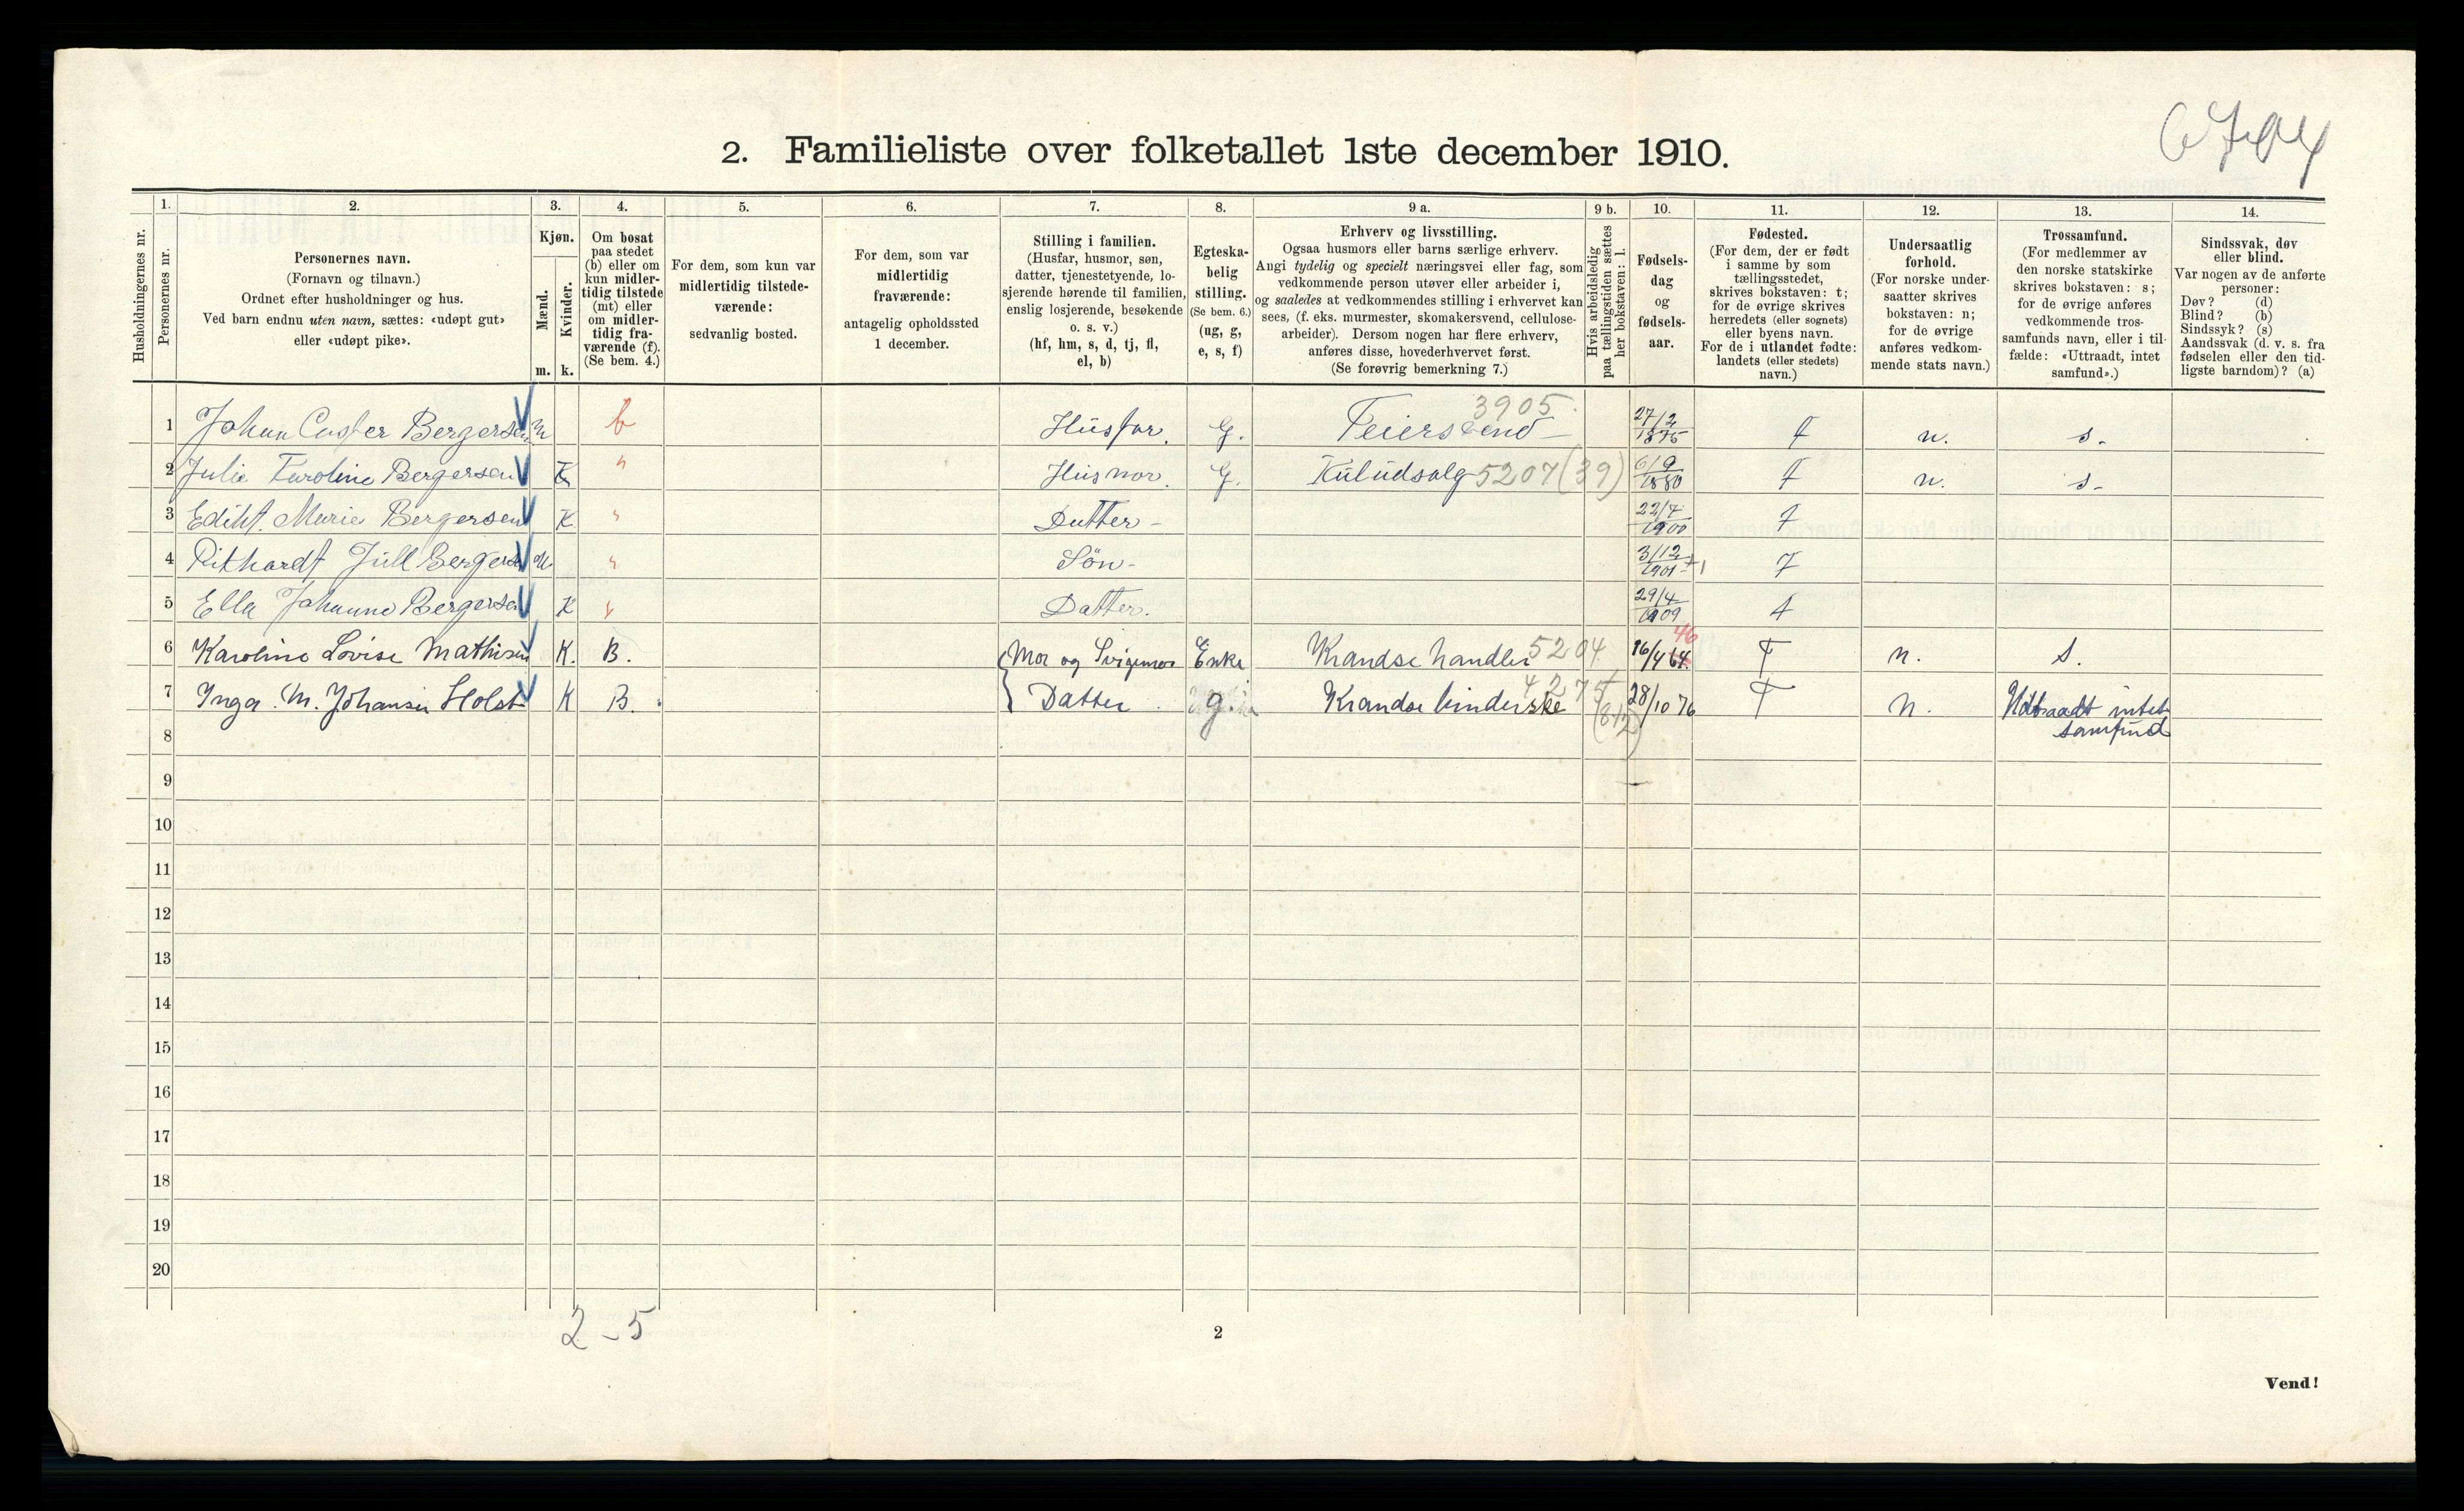 6794
2. Familieliste over folketallet 1ste december 1910.
Husholdningernes nr.
1.
Personernes nr.
2.
Personernes navn.
(Fornavn og tilnavn.)
Ordnet efter husholdninger og hus.
Ved barn endnu uten navn, sættes: «udøpt gut»
eller «udøpt pike».
3.
Kjøn.
Mænd.
Kvinder.
m. k.
4.
Om bosat
paa stedet
(b) eller om
kun midler-
tidig tilstede
(mt) eller
om midler-
tidig fra-
værende (f).
(Se bem. 4.)
5.
For dem, som kun var
midlertidig tilstede-
værende:
sedvanlig bosted.
6.
For dem, som var
midlertidig
fraværende:
antagelig opholdssted
1 december.
7.
Stilling i familien.
(Husfar, husmor, søn,
datter, tjenestetyende, lo-
sjerende hørende til familien,
enslig losjerende, besøkende
o. s. v.)
(hf, hm, s, d, tj, fl,
el, b)
8.
Egteska-
belig
stilling.
(Se bem. 6.)
(ug, g,
e, s, f)
9 a.
Erhverv og livsstilling.
Ogsaa husmors eller barns særlige erhverv.
Angi tydelig og specielt næringsvei eller fag, som
vedkommende person utøver eller arbeider i,
og saaledes at vedkommendes stilling i erhvervet kan
sees, (f. eks. murmester, skomakersvend, cellulose-
arbeider). Dersom nogen har flere erhverv,
anføres disse, hovederhvervet først.
(Se forøvrig bemerkning 7.)
9 b.
Hvis arbeidsledig
paa tællingstiden sættes
her bokstaven: l.
10.
Fødsels-
dag
og
fødsels-
aar.
11.
Fødested.
(For dem, der er født
i samme by som
tællingsstedet,
skrives bokstaven: t;
for de øvrige skrives
herredets (eller sognets)
eller byens navn.
For de i utlandet fødte:
landets (eller stedets)
navn.)
12.
Undersaatlig
forhold.
(For norske under-
saatter skrives
bokstaven: n;
for de øvrige
anføres vedkom-
mende stats navn.)
13.
Trossamfund.
(For medlemmer av
den norske statskirke
skrives bokstaven: s;
for de øvrige anføres
vedkommende tros-
samfunds navn, eller i til-
fælde: «Uttraadt, intet
samfund».)
14.
Sindssvak, døv
eller blind.
Var nogen av de anførte
personer:
Døv? (d)
Blind? (b)
Sindssyk? (s)
Aandssvak (d. v. s. fra
fødselen eller den tid-
ligste barndom)? (a)
1 Johan Casper Bergersen m b Husfar. G. Feiersvend 3905. 27/2 1875 t n. s.
2 Julie Karoline Bergersen K " Husmor. G. Kuludsalg 5207 (39) 6/9 1880 t n. s.
3 Ediht. Marie Bergersen K " Datter 22/7 1900 t
4 Rithardt Jull Bergersen m " Sön 3/12 1901 t
5 Ella Johanne Bergersen K " Datter. 29/4 1909 t
6 Karoline Lovise Mathisen K. B. Mor og Svigemor Enke Krandse handler 5204 16/4 64. 46 T n. S.
7 Inga. M. Johansen Holst K B. Datter g. Krandse binderske 4275 (812) 28/10 76 T n. Udtraadt intet
samfund
8
9
10
11
12
13
14
15
16
17
18
19
20
2-5
2
Vend!